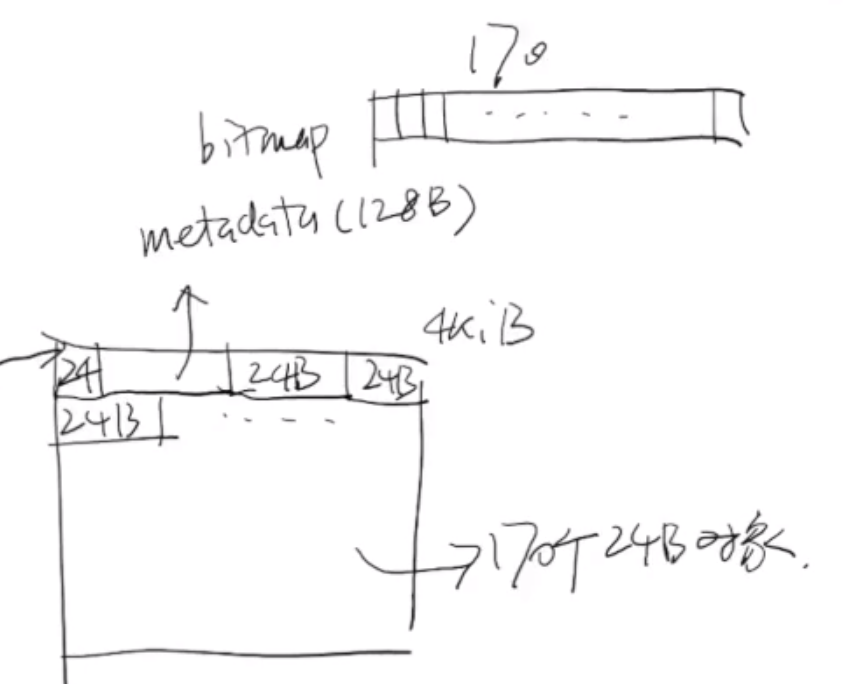 170
bitmap
metadata(128B)
4KiB
24 24B 24B
24B
170个24B对象.